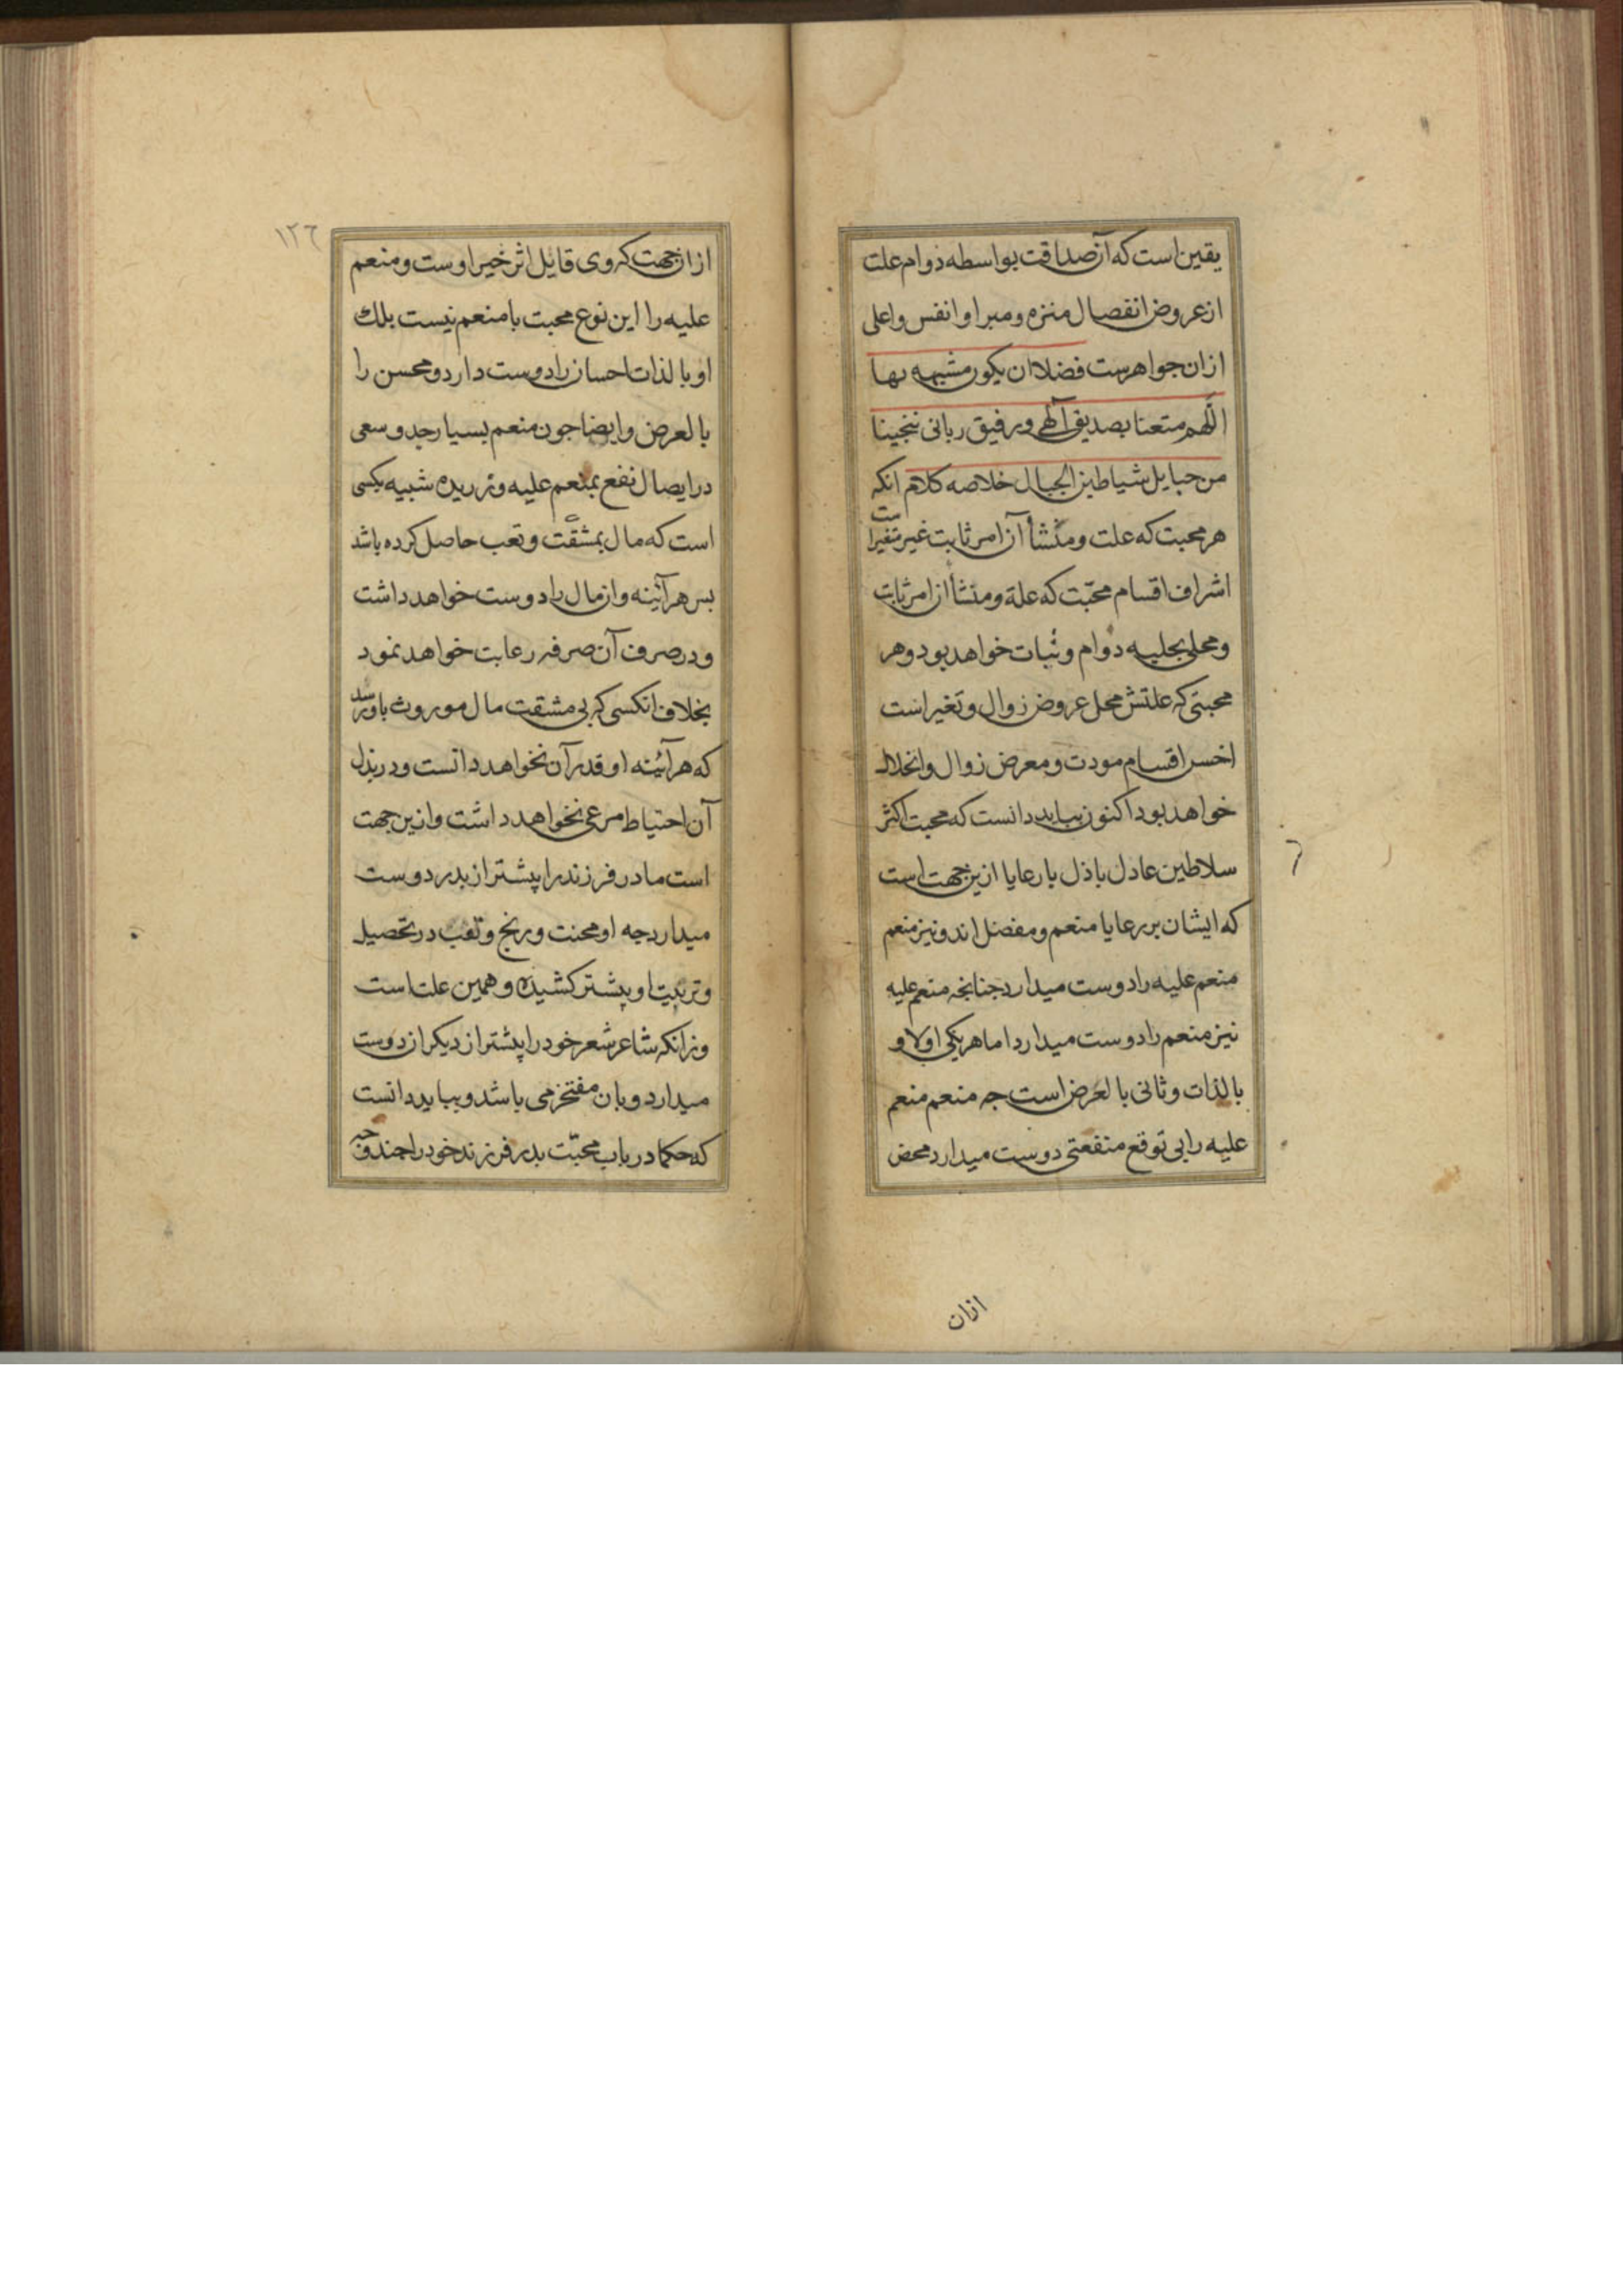 یقین است که آن صداقت بواسطه دوام علت
از عروض انفصال منزه و مبرا و انفس و اعلی
ازان جواهرست فضلا ان یکون مشبهه بها
اللّهم متعنا بصدیق آلهی و رفیق ربانی ننجینا
من حبایل شیاطین الجبال خلاصه کلام انکه
هر محبت که علت و منشأ آن امر ثابت غیر متغیرا ست
اشراف اقسام محبّت که علة و منشأ از امر ثابت
و محلی بحلیه دوام و ثبات خواهد بود و هر
محبتی که علتش محل عروض زوال و تغیر است
اخس اقسام مودت و معرض زوال و انحلال
خواهد بود اکنون بباید دانست که محبت اکثر
سلاطین عادل باذل با رعایا ازین جهت است
که ایشان بر رعایا منعم و مفضل اند و نیز منعم
منعم علیه را دوست میدارد جنانجه منعم علیه
نیز منعم را دوست میدارد اما هر یکی اولا و
بالذات و ثانی بالعرض است جه منعم منعم
علیه را بی توقع منفعتی دوست میدارد محض
ازان
١٢٦
ازان جهت که وی قایل اثر خیر اوست و منعم
علیه را این نوع محبت با منعم نیست بلك
او بالذات احسان را دوست دارد و محسن را
بالعرض و ایضا جون منعم بسیار جد و سعی
در ایصال نفع بمنعم علیه ورزیده شبیه بکسی
است که مال بمشقّت و تعب حاصل کرده باشد
بس هر آئینه وان مال را دوست خواهد داشت
و در صرف آن صرفه رعایت خواهد نمود
بخلاف انکسی که بی مشقت مال موروث باو رسد
که هر آئینه او قدر آن نخواهد دانست و در بذل
آن احتیاط مرعی نخواهد داشت و ازین جهت
است مادر فرزند را پیشتر از بدر دوست
میدارد جه او محنت و رنج و تعب در تحصیل
و تربیت او پیشتر کشیده و همین علت است
وزانکه شاعر شعر خود را پیشتر از دیکران دوست
میدارد و بان مفتخر می باشد و بباید دانست
که حکما در باب محبّت بدر فرزند خود را جند وجه